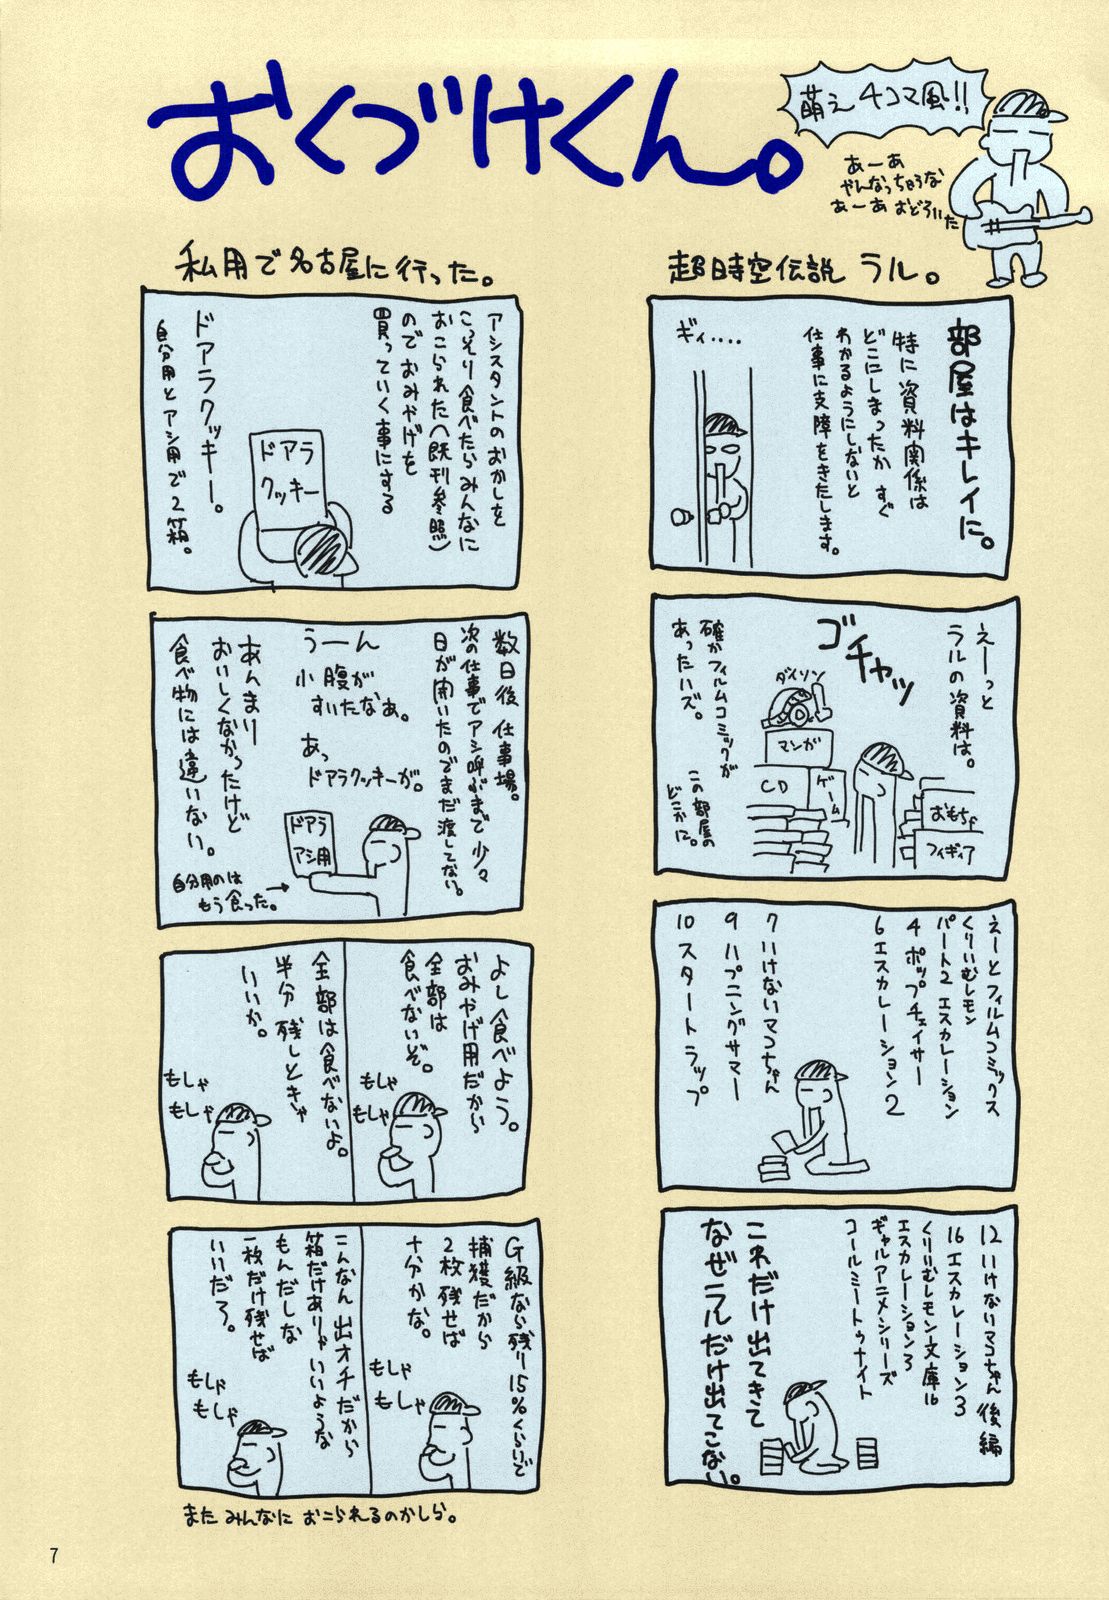 おくづけくん。
萌え4コマ風!!
あーあ
やんなっちゃうな
あーあ おどろいた
超時空伝説 ラル。
部屋はキレイに。
特に資料関係は
どこにしまったか すぐ
わかるようにしないと
仕事に支障をきたします。
ギィ‥‥
えーっと
ラルの資料は。
ゴチャッ
ダイソン
マンガ
CD
ゲーム
おもちゃ
フィギィア
確かフィルムコミックが
あったハズ。
この部屋の
どこかに。
えーとフィルムコミックス
くりいむレモン
パート2 エスカレーション
4 ポップチェイサー
6 エスカレーション2
7 いけないマコちゃん
9 ハプニングサマー
10 スタートラップ
12 いけないマコちゃん 後編
16 エスカレーション3
くりいむレモン文庫16
エスカレーション3
ギャルアニメシリーズ
コールミートゥナイト
これだけ出てきて
なぜラルだけ出てこない。
私用で名古屋に行った。
アシスタントのおかしを
こっそり食べたらみんなに
おこられた(既刊参照)
ので おみやげを
買っていく事にする
ドアラ
クッキー
ドアラクッキー。
自分用とアシ用で2箱。
数日後 仕事場。
次の仕事でアシ呼ぶまで少々
日が開いたのでまだ渡してない。
うーん
小腹が
すいたなあ。
あっ
ドアラクッキーが。
ドアラ
アシ用
あんまり
おいしくなかったけど
食べ物には違いない。
自分用のは
もう食った。
よし食べよう。
おみやげ用だから
全部は
食べないぞ。
もしゃ
もしゃ
全部は食べないよ。
半分 残しときゃ
いいか。
もしゃ
もしゃ
G級なら残り15%くらいで
捕獲だから
2枚残せば
十分かな。
もしゃ
もしゃ
こんなん出オチだから
箱だけありゃいいような
もんだしな
一枚だけ残せば
いいだろ。
もしゃ
もしゃ
また みんなに おこられるのかしら。
7